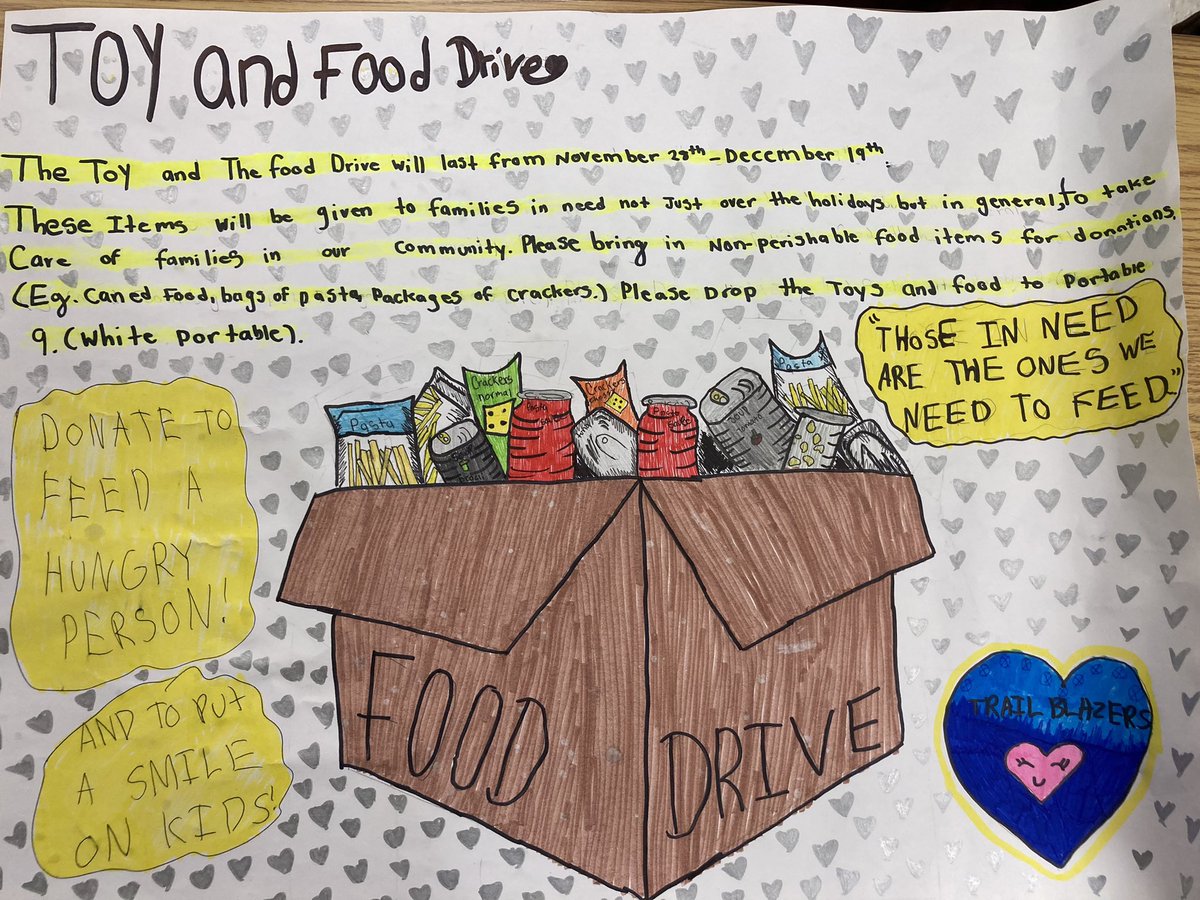 TOY and Food Drive
The Toy and The food Drive will last from November 28th - December 19th.
These Items will be given to families in need not Just over the holidays but in general, to take
Care of families in our community. Please bring in Non-perishable food items for donations.
(Eg. Caned Food, bags of pasta, Packages of crackers.) Please Drop the Toys and food to Portable
9. (White Portable).
"THOSE IN NEED
ARE THE ONES WE
NEED TO FEED."
DONATE TO
FEED A
HUNGRY
PERSON!
AND TO PUT
A SMILE
ON KIDS!
Pasta
Crackers
normal
Pasta
Crackers
Pasta
Soup
FOOD
DRIVE
TRAIL BLAZERS